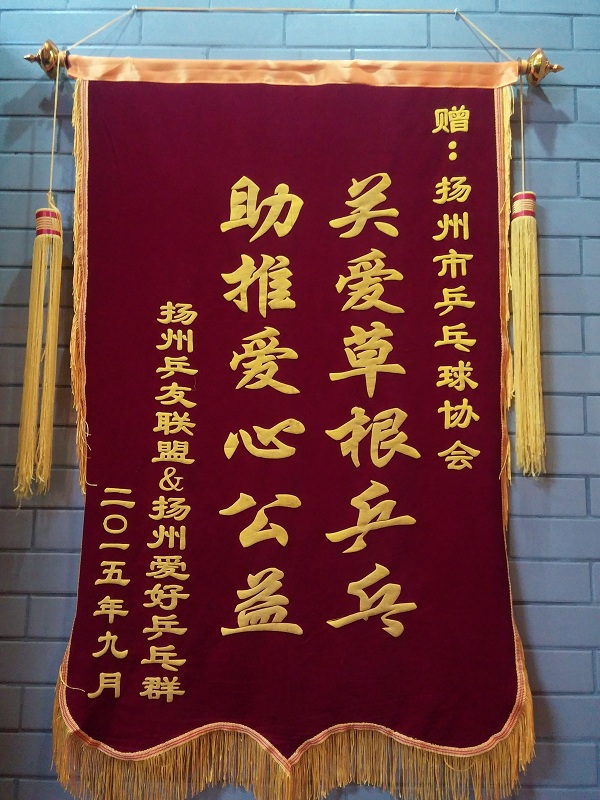 赠：扬州市乒乓球协会
关爱草根乒乓
助推爱心公益
扬州乒友联盟&扬州爱好乒乓群
二〇一五年九月